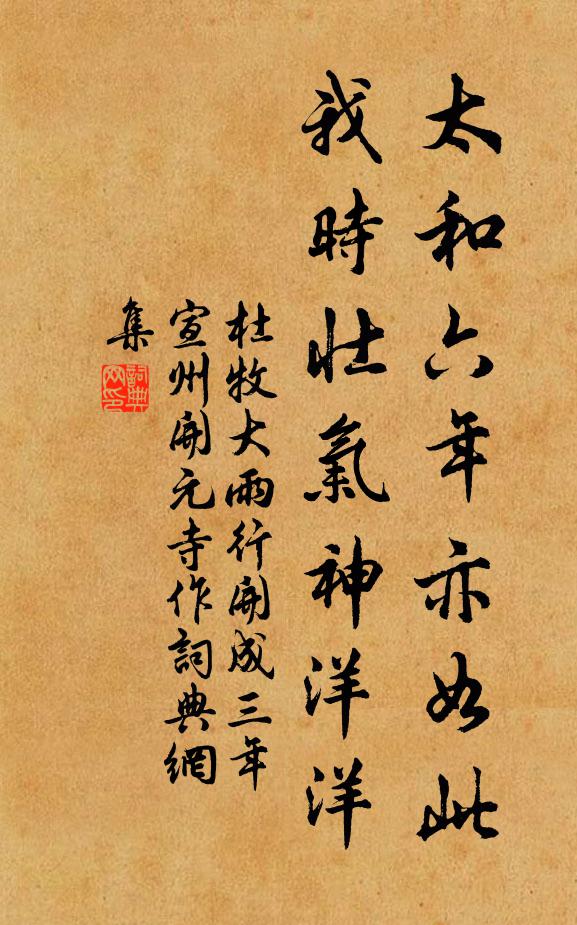 太和六年亦如此
我時壯氣神洋洋
杜牧大雨行開成三年
宣州開元寺作詞典網
集
詞典網印